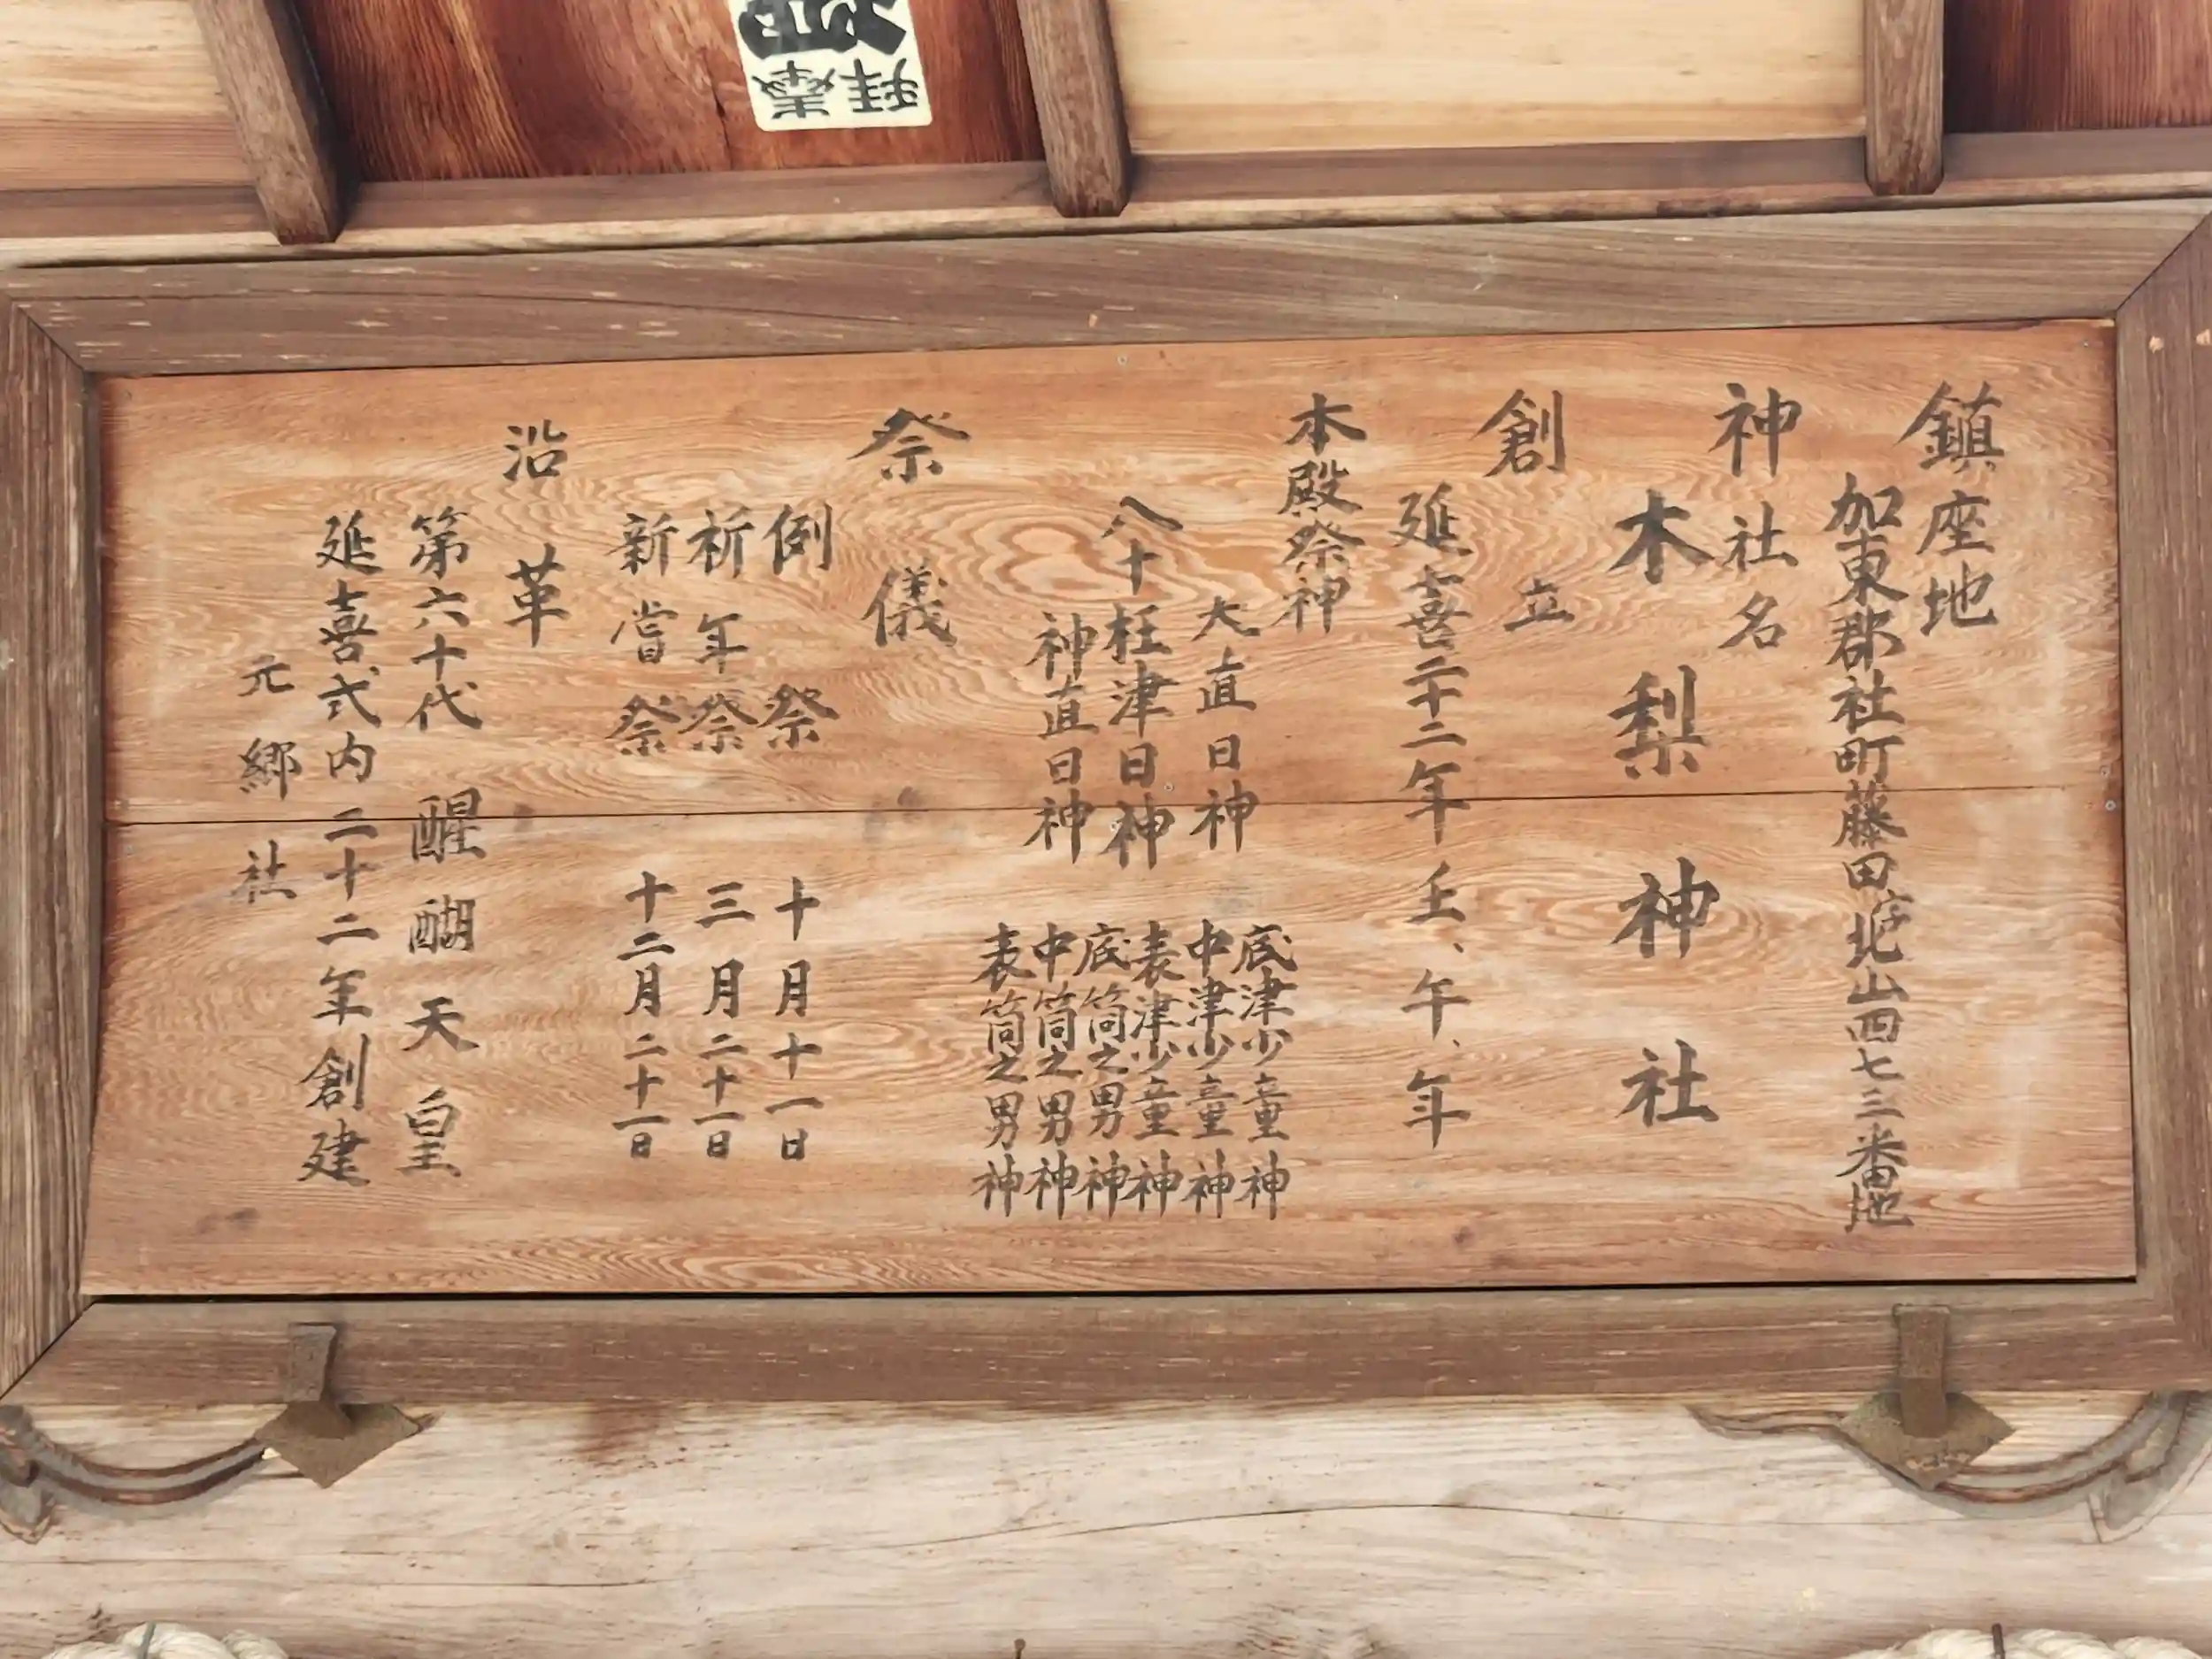 鎮座地
加東郡社町藤田字北山四七三番地
神社名
木梨神社
創立
延喜二十二年壬、午、年
本殿祭神
大直日神
八十枉津日神
神直日神
底津少童神
中津少童神
表津少童神
底筒之男神
中筒之男神
表筒之男神
祭儀
例祭 十月十一日
祈年祭 三月二十一日
新嘗祭 十二月二十一日
沿革
第六十代 醒醐天皇
延喜、式内二十二年創建
元郷社
拝
奉